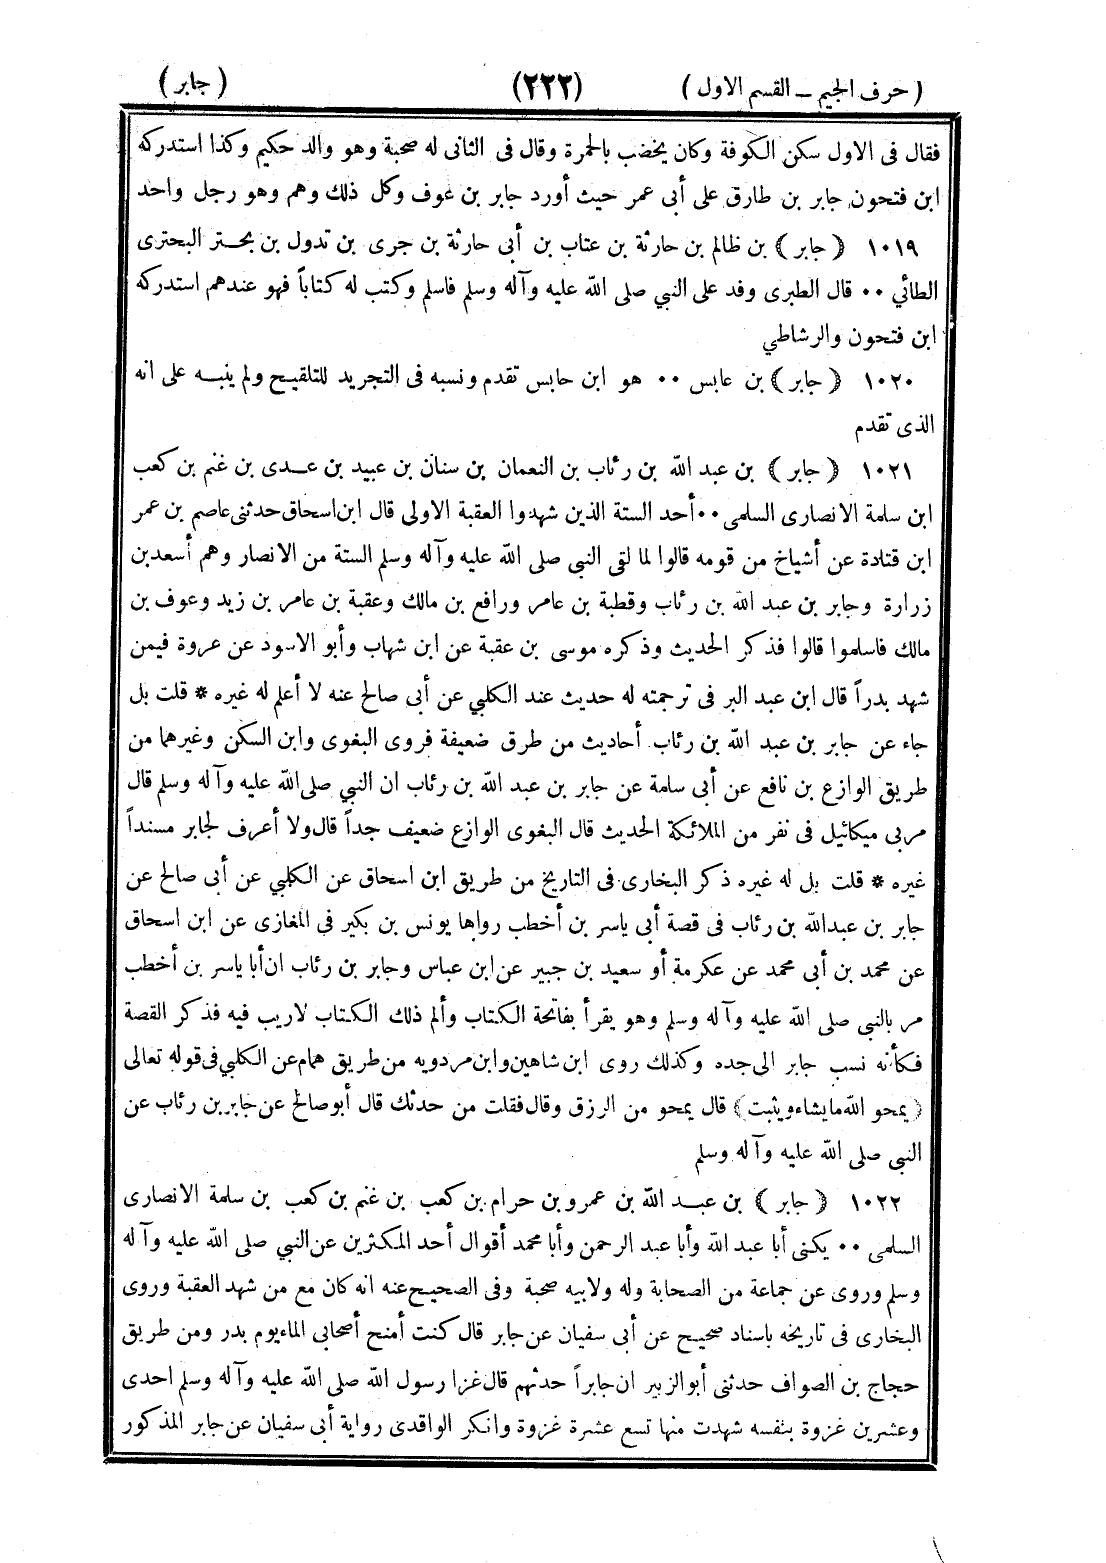 ( حرف الجيم ــ القسم الاول ) (٢٢٢) ( جابر )
فقال فى الاول سكن الكوفة وكان يخضب بالحمرة وقال فى الثانى له صحبة وهو والد حكيم وكذا استدركه
ابن فتحون جابر بن طارق على أبى عمر حيث أورد جابر بن عوف وكل ذلك وهم وهو رجل واحد
١٠١٩ ﴿ جابر ﴾ بن ظالم بن حارثة بن عتاب بن أبى حارثة بن جرى بن تدول بن بحتر البحترى
الطائي ٠٠ قال الطبرى وفد على النبي صلى الله عليه وآله وسلم فاسلم وكتب له كتاباً فهو عندهم استدركه
ابن فتحون والرشاطي
١٠٢٠ ﴿ جابر ﴾ بن عابس ٠٠ هو ابن حابس تقدم ونسبه فى التجريد للتلقيح ولم ينبه على انه
الذى تقدم
١٠٢١ ﴿ جابر ﴾ بن عبد الله بن رئاب بن النعمان بن سنان بن عبيد بن عدى بن غنم بن كعب
ابن سلمة الانصارى السلمى ٠٠ أحد الستة الذين شهدوا العقبة الاولى قال ابن اسحاق حدثنى عاصم بن عمر
ابن قتادة عن أشياخ من قومه قالوا لما لقى النبى صلى الله عليه وآله وسلم الستة من الانصار وهم أسعد بن
زرارة وجابر بن عبد الله بن رئاب وقطبة بن عامر ورافع بن مالك وعقبة بن عامر بن زيد وعوف بن
مالك فاسلموا قالوا فذكر الحديث وذكره موسى بن عقبة عن ابن شهاب وأبو الاسود عن عروة فيمن
شهد بدراً قال ابن عبد البر فى ترجمته له حديث عند الكلبي عن أبى صالح عنه لا أعلم له غيره * قلت بل
جاء عن جابر بن عبد الله بن رئاب أحاديث من طرق ضعيفة فروى البغوى وابن السكن وغيرهما من
طريق الوازع بن نافع عن أبى سلمة عن جابر بن عبد الله بن رئاب ان النبي صلى الله عليه وآله وسلم قال
مر بى ميكائيل فى نفر من الملائكة الحديث قال البغوى الوازع ضعيف جداً قال ولا أعرف لجابر مسنداً
غيره * قلت بل له غيره ذكر البخارى فى التاريخ من طريق ابن اسحاق عن الكلبي عن أبى صالح عن
جابر بن عبدالله بن رئاب فى قصة أبي ياسر بن أخطب رواها يونس بن بكير فى المغازى عن ابن اسحاق
عن محمد بن أبى محمد عن عكرمة أو سعيد بن جبير عن ابن عباس وجابر بن رئاب ان أبا ياسر بن أخطب
مر بالنبي صلى الله عليه وآله وسلم وهو يقرأ بفاتحة الكتاب وألم ذلك الكتاب لاريب فيه فذكر القصة
فكأنه نسب جابر الى جده وكذلك روى ابن شاهين وابن مردويه من طريق همام عن الكلبي فى قوله تعالى
﴿ يمحو الله مايشاء ويثبت ﴾ قال يمحو من الرزق وقال فقلت من حدثك قال أبوصالح عن جابر بن رئاب عن
النبى صلى الله عليه وآله وسلم
١٠٢٢ ﴿ جابر ﴾ بن عبد الله بن عمرو بن حرام بن كعب بن غنم بن كعب بن سلمة الانصارى
السلمى ٠٠ يكنى أبا عبد الله وأبا عبد الرحمن وأبا محمد أقوال أحد المكثرين عن النبي صلى الله عليه وآله
وسلم وروى عن جماعة من الصحابة وله ولابيه صحبة وفى الصحيح عنه انه كان مع من شهد العقبة وروى
البخارى فى تاريخه باسناد صحيح عن أبى سفيان عن جابر قال كنت أمنح أصحابي الماء يوم بدر ومن طريق
حجاج بن الصواف حدثنى أبو الزبير ان جابراً حدثهم قال غزا رسول الله صلى الله عليه وآله وسلم احدى
وعشرين غزوة بنفسه شهدت منها تسع عشرة غزوة وانكر الواقدى رواية أبى سفيان عن جابر المذكور